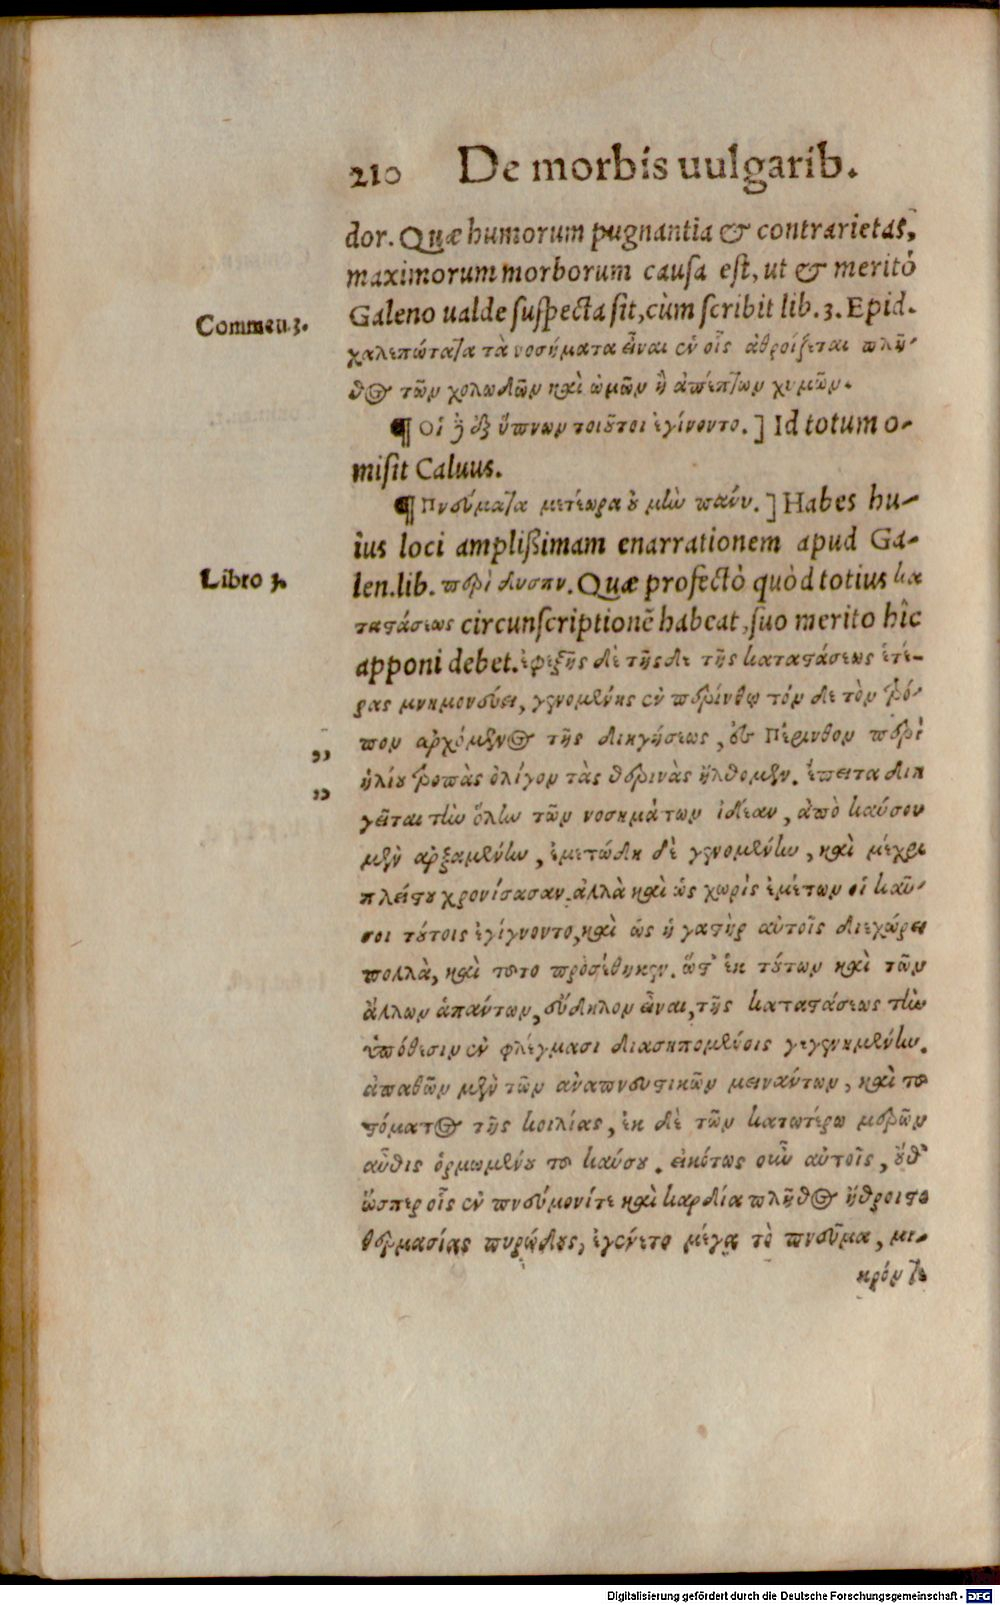 210 De morbis uulgarib.
dor. Quæ humorum pugnantia & contrarietas,
maximorum morborum causa est, ut & meritò
Galeno ualde suspecta sit, cùm scribit lib. 3. Epid.
Commen 3.
χαλεπώταζα τὰ νοσήματα εἶναι ἐν οἷς ἀθροίζεται πλῆ-
θος τῶν χολωδῶν καὶ ὠμῶν ἢ ἀπέπτων χυμῶν.
¶ Οἱ δὲ ἐξ ὕπνων τοιοῦτοι ἐγίνοντο.] Id totum o-
misit Caluus.
¶ Πνεύματα μετέωρα οὐ μὴν πάνυ.] Habes hu-
ius loci amplißimam enarrationem apud Ga-
Libro 3.
len. lib. περὶ δυσπν. Quæ profectò quòd totius κα
ταστάσεως circunscriptionẽ habeat, suo merito hîc
apponi debet. ἐφεξῆς δὲ τῆσδε τῆς καταστάσεως ἑτέ-
ρας μνημονεύει, γενομένης ἐν περίνθῳ τόν δε τὸν τρό-
που ἀρχόμενος τῆς διηγήσεως, ἐς Πέρινθον περὶ
„ ἡλίου τροπὰς ὀλίγον τὰς θερινὰς ἤλθομεν. ἔπειτα διη
„ γεῖται τὴν ὅλην τῶν νοσημάτων ἰδέαν, ἀπὸ καύσου
μὲν ἀρξαμένην, ἐμετώδη δὲ γενομένην, καὶ μέχρι
πλείστου χρονίσασαν. ἀλλὰ καὶ ὡς χωρὶς ἐμέτων οἱ καῦ-
σοι τούτοις ἐγίγνοντο, καὶ ὡς ἡ γαστὴρ αὐτοῖς διεχώρει
πολλὰ, καὶ τοῦτο προσέθηκεν. ὥστ' ἐκ τούτων καὶ τῶν
ἄλλων ἁπάντων, εὔδηλον εἶναι, τῆς καταστάσεως τὴν
ὑπόθεσιν ἐν φλέγμασι διασηπομένοις γεγενημένην.
ἀπαθῶν μὲν τῶν ἀναπνευστικῶν μεινάντων, καὶ τοῦ
στόματος τῆς κοιλίας, ἐκ δὲ τῶν κατωτέρω μερῶν
αὖθις ὁρμωμένου τοῦ καύσου. εἰκότως οὖν αὐτοῖς, οὐθ'
ὥσπερ οἷς ἐν πνεύμονί τε καὶ καρδίᾳ πλῆθος ἤθροιστο
θερμασίας πυρώδους, ἐγένετο μέγα τὸ πνεῦμα, μι-
κρόν τε